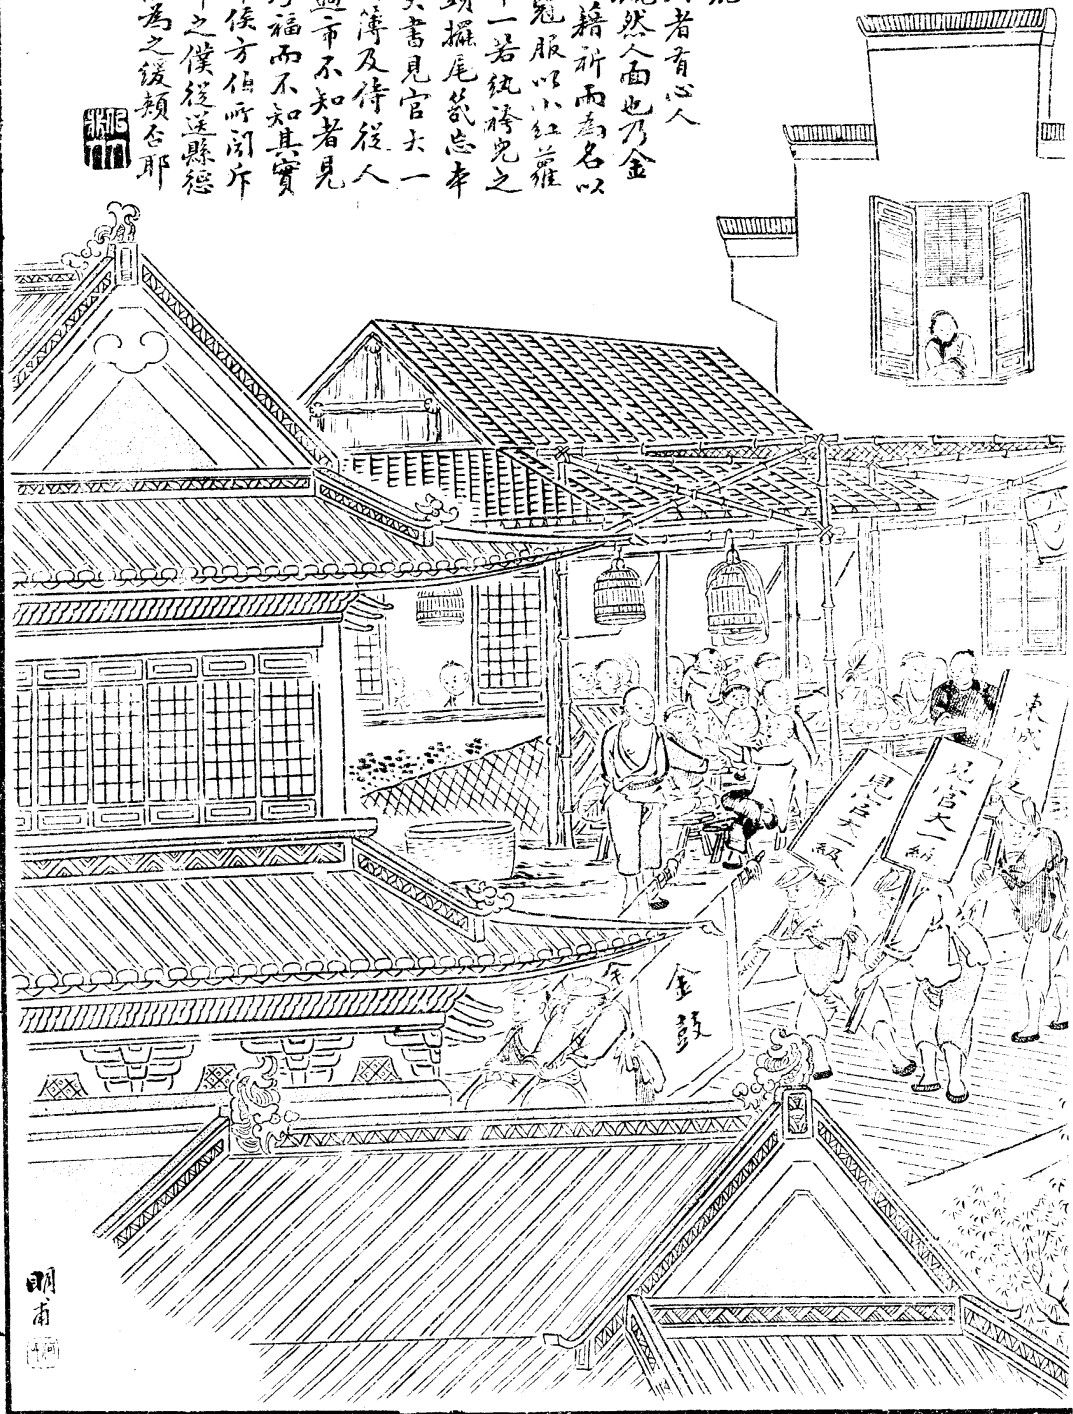 者有心人
然人面也乃金
籍祈而為名以
冠服以小紅蘿
一若紈袴兒之
頭擺尾幾忘本
大書見官大一
簿及侍從人
過市不知者見
福而不知其實
侯方伯所聞斥
之僕從送縣德
為之緩頰否耶
見官大一級
見官大一級
金鼓
明甫